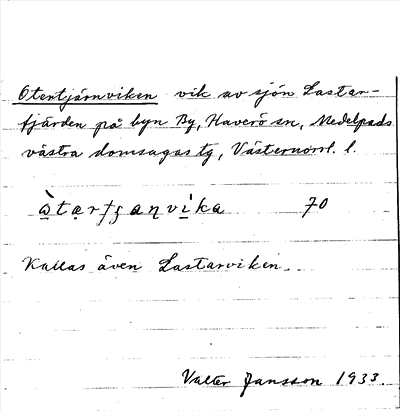 Otertjärnviken vik av sjön Lastar-
fjärden på byn By, Haverö sn, Medelpads
västra domsagas tg, Västernorrl. l.
70
Kallas även Lastarviken.
Valter Jansson 1933.